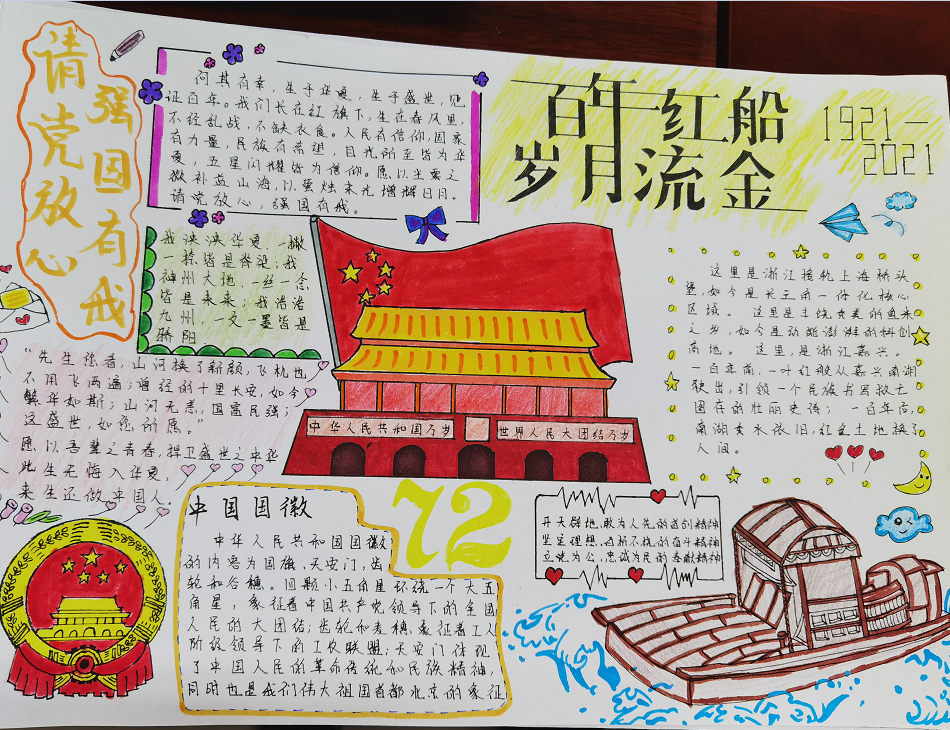 请党放心
强国有我
何其有幸，生于华夏，生于盛世，见
证百年。我们长在红旗下，生在春风里，
不经乱战，不缺衣食。人民有信仰，国家
有力量，民族有希望，目光所至皆为华
夏，五星闪耀皆为信仰。愿以尘雾之
微补益山海，以萤烛末光增辉日月。
请党放心，强国有我。
百年红船
岁月流金
1921—
2021
我泱泱华夏，一撇
一捺皆是脊梁；我
神州大地，一丝一念
皆是未来；我浩浩
九州，一文一墨皆是
骄阳
这里是浙江接轨上海桥头
堡，如今是长三角一体化核心
区域。这里是丰饶
之乡，如今是动能澎湃的科创
高地。这里，是浙江嘉兴。
一百年前，一叶红船从嘉兴南湖
驶出，引领一个民族书写救亡
图存的壮丽史诗；一百年后，
南湖 水依旧，红色土地换了
人间。
“先生您看，山河换了新颜，飞机也
不用飞两遍；曾经的十里长安，如今
繁华如斯；山河无恙，国富民强；
这盛世，如您所愿。”
愿以吾辈之青春，捍卫盛世之中华
此生无悔入华夏，
来生还做中国人。
中华人民共和国万岁
世界人民大团结万岁
中国国徽
中华人民共和国国徽
的内容为国旗，天安门，齿
轮和谷穗。四颗小五角星环绕一个大五
角星，象征着中国共产党领导下的全国
人民的大团结；齿轮和麦穗，象征着工人
阶级领导下的工农联盟；天安门体现
了中国人民的革命传统和民族精神，
同时也是我们伟大祖国首都北京的象征
72
开天辟地，敢为人先的首创精神
坚定理想，百折不挠的奋斗精神
立党为公，忠诚为民的奉献精神